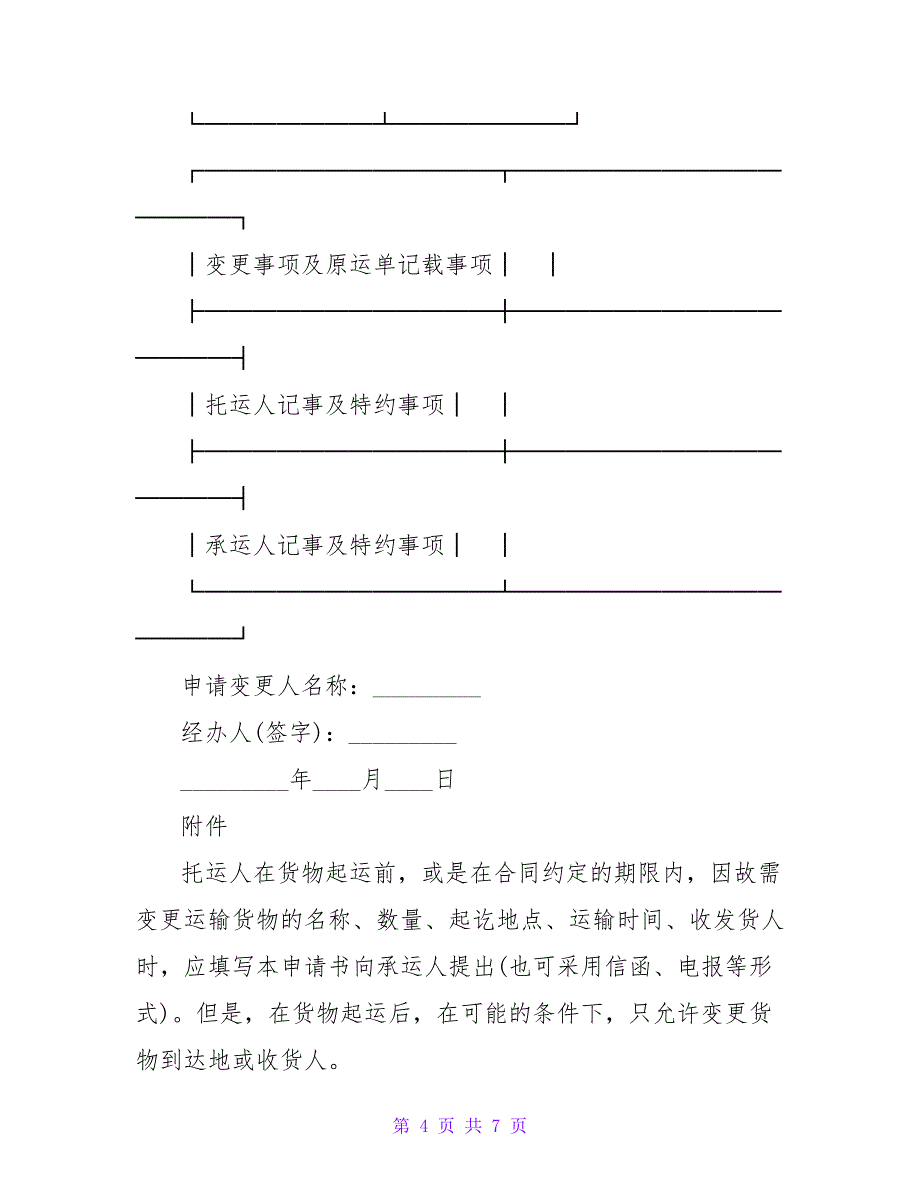 └───────────────┴───────────────┘
┌─────────────────────────┬──────────────────────
────────┐
│变更事项及原运单记载事项│ │
├─────────────────────────┼──────────────────────
────────┤
│托运人记事及特约事项│ │
├─────────────────────────┼──────────────────────
────────┤
│承运人记事及特约事项│ │
└─────────────────────────┴──────────────────────
────────┘
申请变更人名称：_________
经办人(签字)：_________
_________年____月____日
附件
托运人在货物起运前，或是在合同约定的期限内，因故需
变更运输货物的名称、数量、起讫地点、运输时间、收发货人
时，应填写本申请书向承运人提出(也可采用信函、电报等形
式)。但是，在货物起运后，在可能的条件下，只允许变更货
物到达地或收货人。
第 4 页 共 7 页